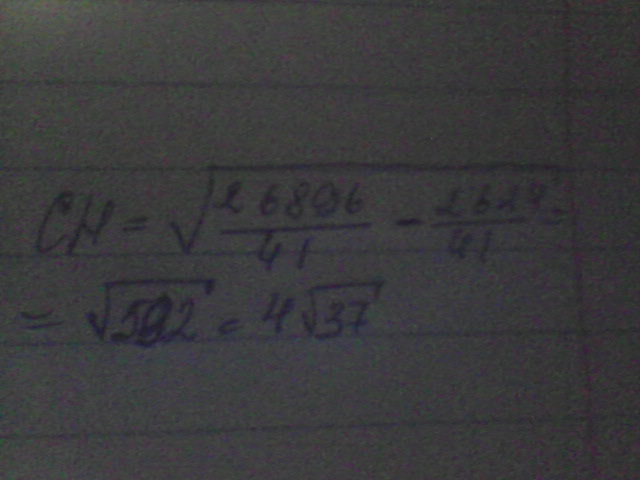 CH = √26896/41 - 2624/41 =
= √592 = 4√37